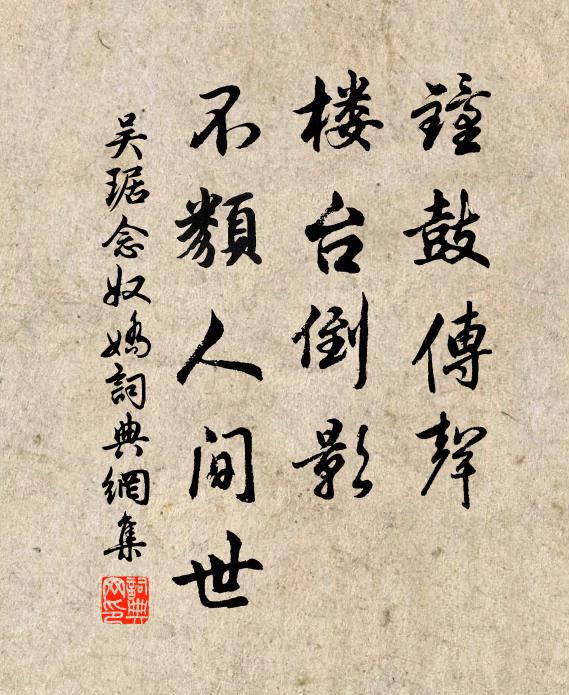 鐘鼓傳聲
楼台倒影
不類人間世
吴琚念奴嬌詞典網集
詞典網印